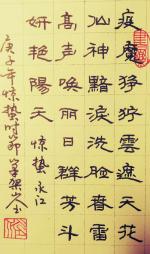 疫魔狰狞雲遮天花
心神黯淚洗臉春雷
高声唤丽日群芳斗
妍艳陽天 惊蛰 永江
庚子年惊蛰时節筆架山人书